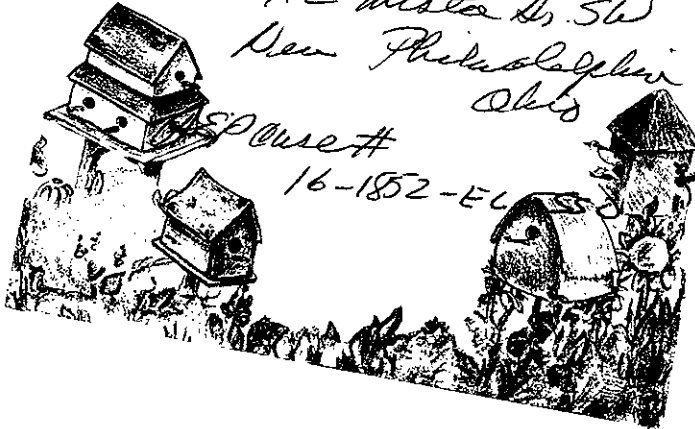 Dr. SW
New Philadelphia
Ohio
Case #
16-1852-EL-SSO